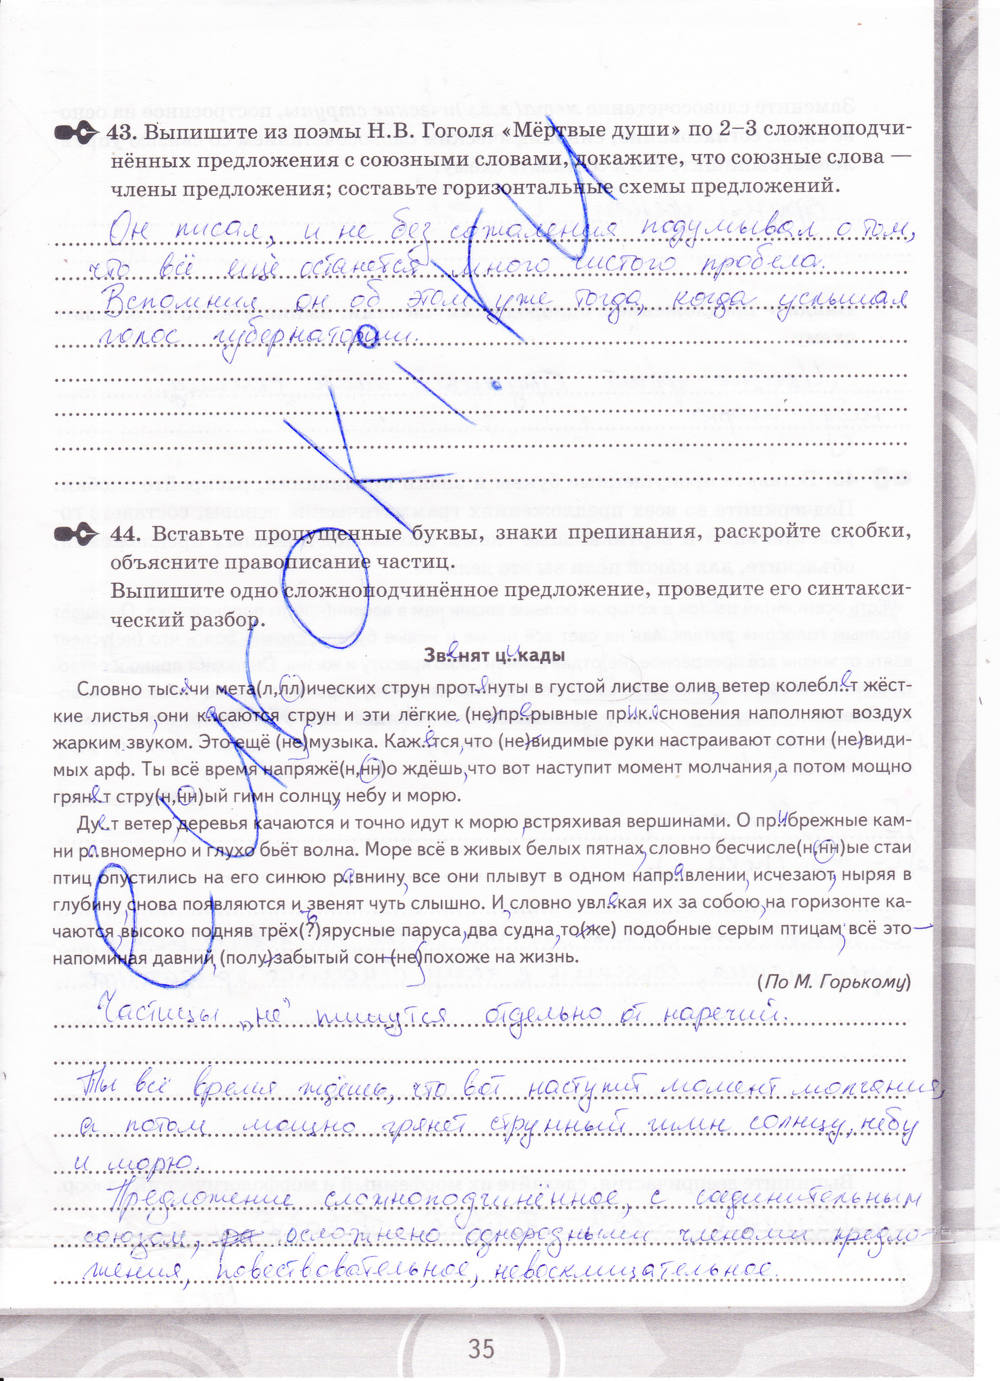 43. Выпишите из поэмы Н.В. Гоголя «Мёртвые души» по 2–3 сложноподчи-
нённых предложения с союзными словами, докажите, что союзные слова —
члены предложения; составьте горизонтальные схемы предложений.
Он писал, и не без сожаления подумывал о том,
что всё ещё останется много чистого пробела.
Вспомнил он об этом уже тогда, когда услышал
голос губернаторши.
44. Вставьте пропущенные буквы, знаки препинания, раскройте скобки,
объясните правописание частиц.
Выпишите одно сложноподчинённое предложение, проведите его синтакси-
ческий разбор.
Звенят цикады
Словно тысячи мета(л,лл)ических струн протянуты в густой листве олив, ветер колеблет жёст-
кие листья, они касаются струн и эти лёгкие, (не)прерывные прикосновения наполняют воздух
жарким звуком. Это ещё (не)музыка. Кажется, что (не)видимые руки настраивают сотни (не)види-
мых арф. Ты всё время напряжё(н,нн)о ждёшь, что вот наступит момент молчания, а потом мощно
грянет стру(н,нн)ый гимн солнцу, небу и морю.
Дует ветер, деревья качаются и точно идут к морю, встряхивая вершинами. О прибрежные кам-
ни равномерно и глухо бьёт волна. Море всё в живых белых пятнах, словно бесчисле(н,нн)ые стаи
птиц опустились на его синюю равнину, все они плывут в одном направлении, исчезают, ныряя в
глубину, снова появляются и звенят чуть слышно. И, словно увлекая их за собою, на горизонте ка-
чаются, высоко подняв трёх(?)ъярусные паруса, два судна, то(же) подобные серым птицам; всё это —
напоминая давний, (полу)забытый сон — (не)похоже на жизнь.
(По М. Горькому)
Частицы „не" пишутся отдельно от наречий.
Ты всё время ждёшь, что вот наступит момент молчания,
а потом мощно грянет струнный гимн солнцу, небу
и морю.
Предложение сложноподчинённое, с соединительным
союзом, осложнено однородными членами предло-
жения, повествовательное, невосклицательное.
е уроки.ru
35